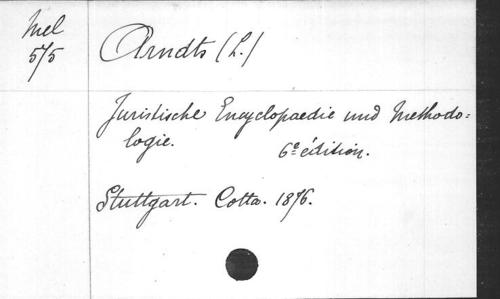 Mel
575
Arndts (L.)
Juristische Encyclopaedie und Methodo=
logie.
6e édition.
Stuttgart. Cotta. 1876.